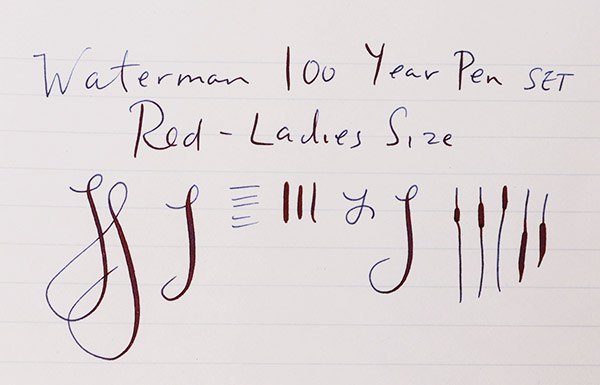 Waterman 100 Year Pen SET
Red - Ladies Size